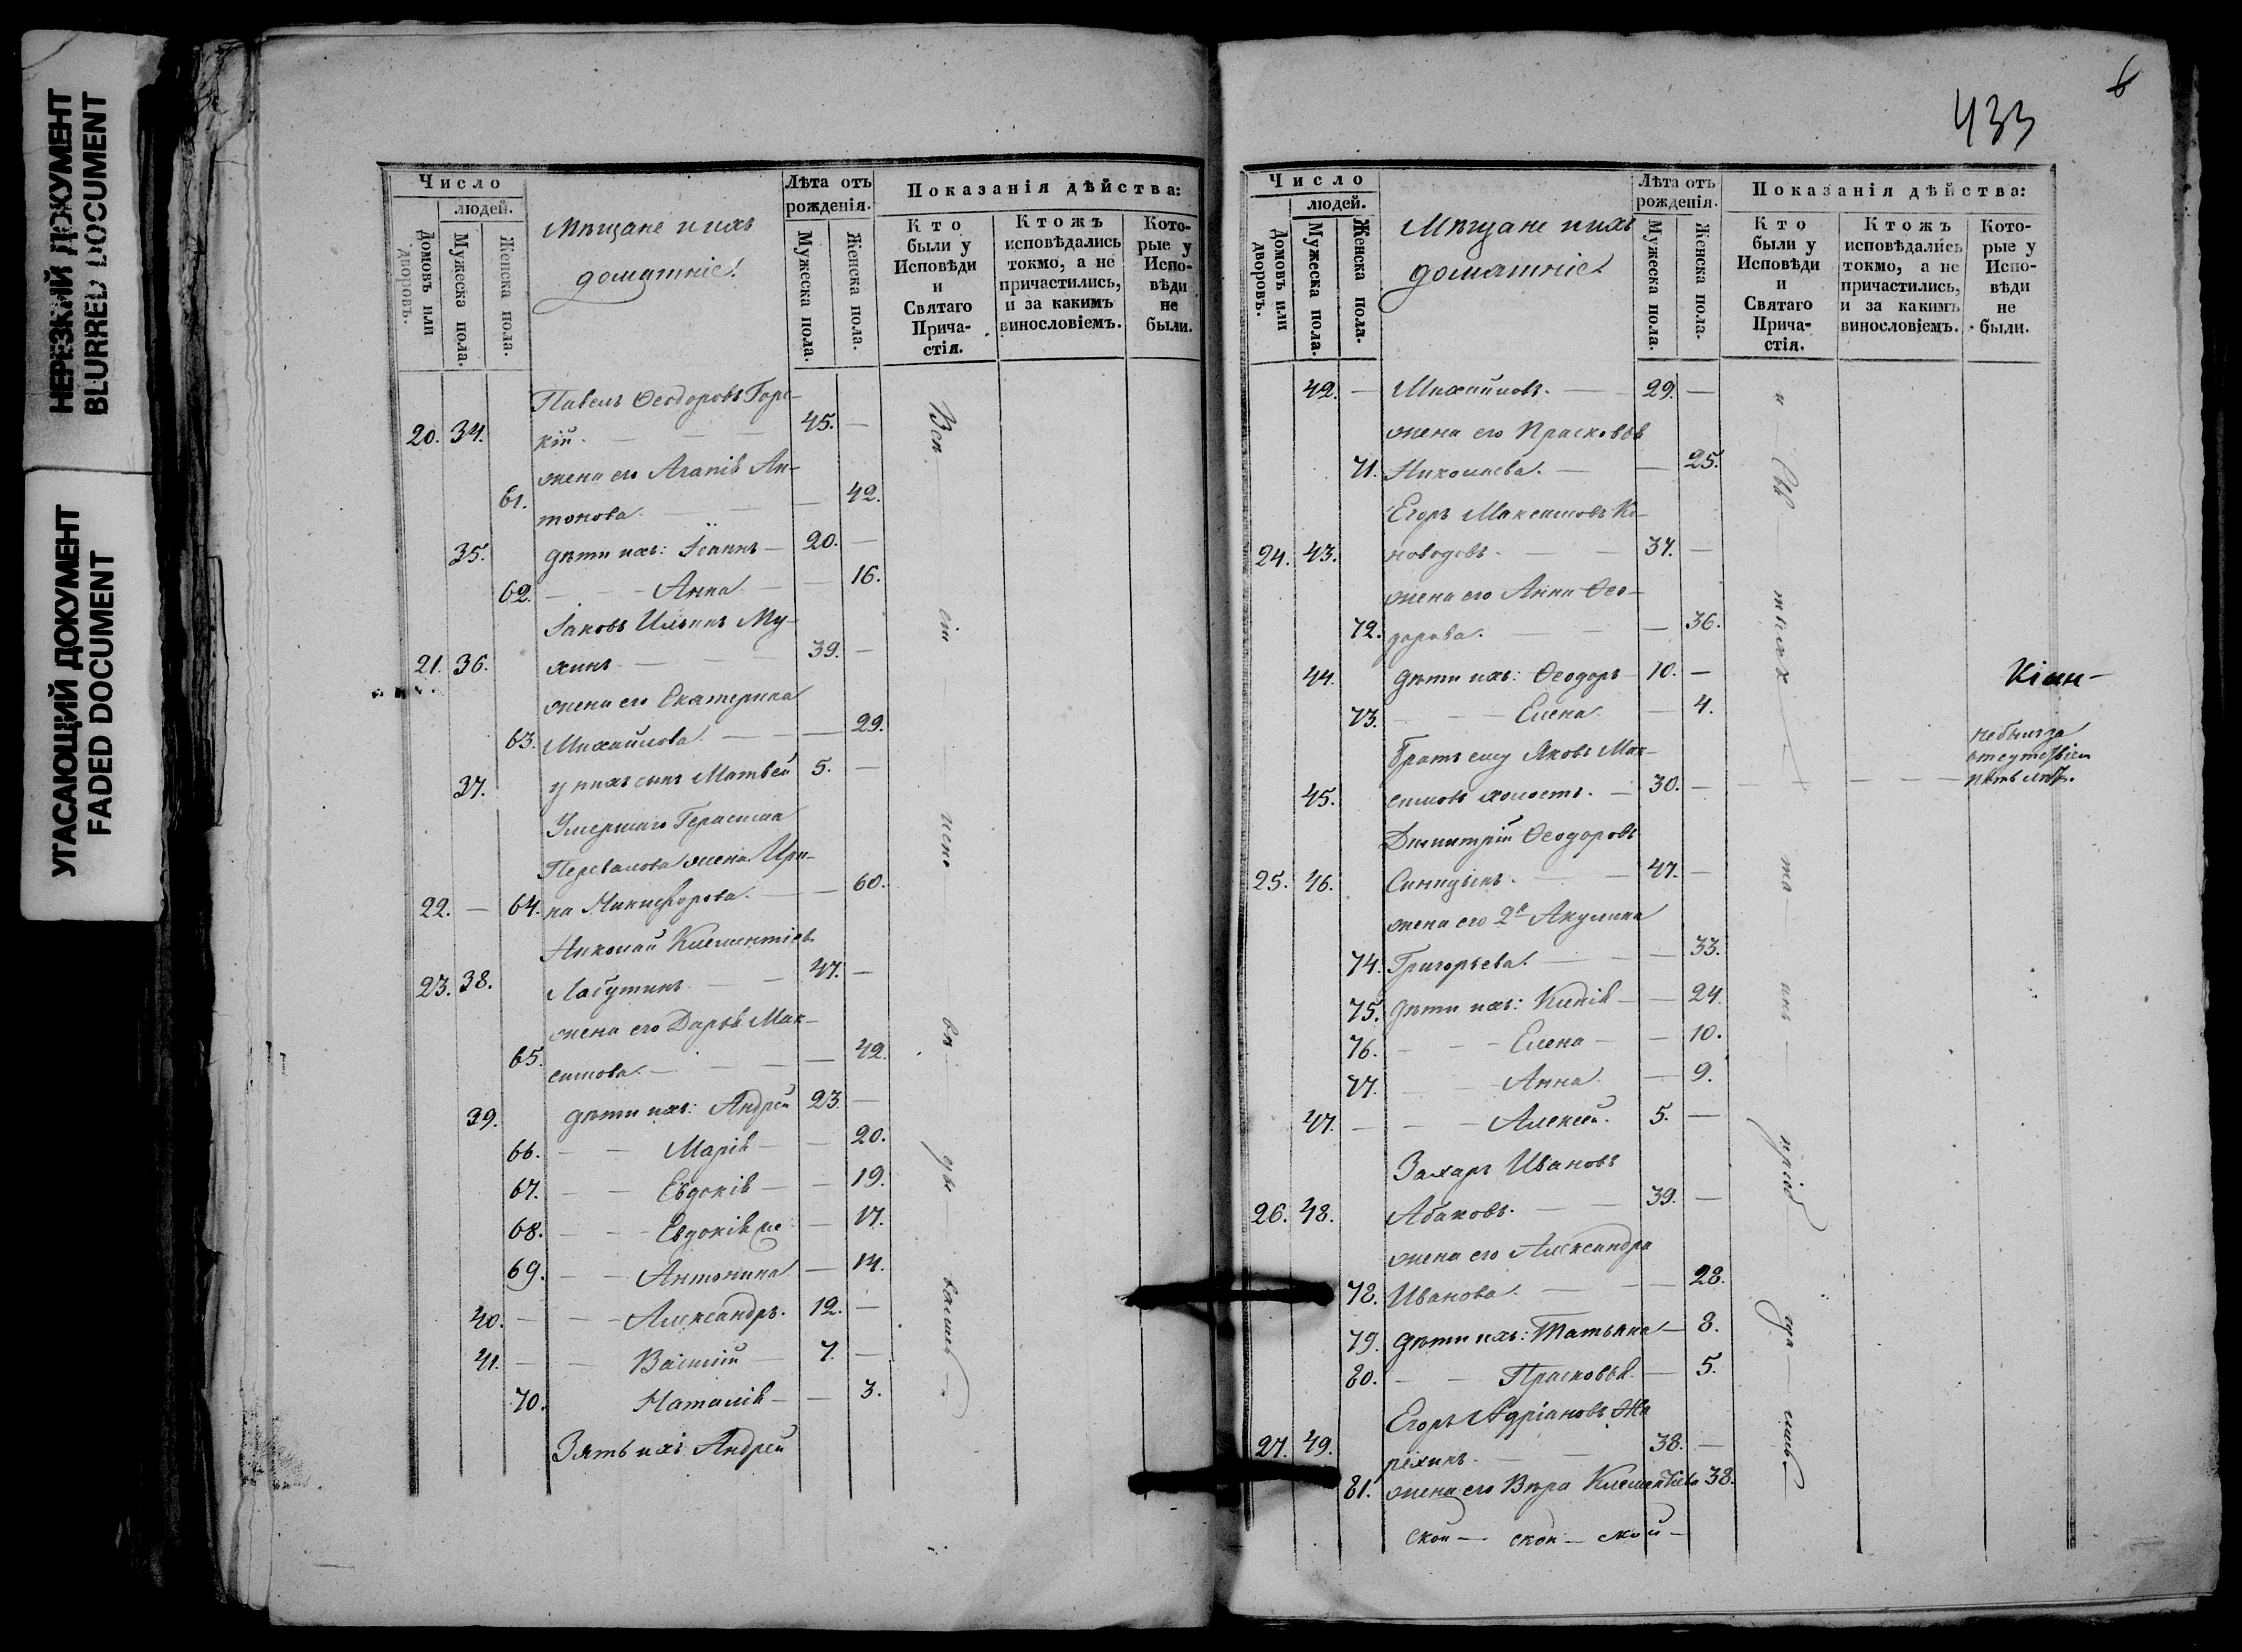 НЕРЕЗКИЙ ДОКУМЕНТ
BLURRED DOCUMENT
УГАСАЮЩИЙ ДОКУМЕНТ
FADED DOCUMENT
Число
людей.
Домовъ или дворовъ.
Мужеска пола.
Женска пола.
Мѣщане и ихъ
домашніе.
Лѣта отъ
рожденія.
Мужеска пола.
Женска пола.
Показанія дѣйства:
Кто
были у
Исповѣди
и
Святаго
Прича-
стія.
Ктожъ
исповѣдались
токмо, а не
причастились,
и за какимъ
винословіемъ.
Кото-
рые у
Испо-
вѣди
не
были.
Павелъ Ѳеодоровъ Горс-
20. 34. кій. — 45. —
жена его Агапія Ан-
61. тонова — 42.
35. дѣти ихъ: Іоаннъ — 20. —
62. — Анна — 16.
Іаковъ Ильинъ Му-
21. 36. хинъ — 39. —
жена его Екатерина
63. Михайлова — 29.
37. у нихъ сынъ Матвей 5. —
Умершаго Герасима
Перевалова жена Ири-
22. — 64. на Никифорова. — 60.
Николай Клементіевъ
23. 38. Лабутинъ — 47. —
жена его Дарья Мак-
65. симова. — 42.
39. дѣти ихъ: Андрей 23. —
66. — Марія — 20.
67. — Евдокія — 19.
68. — Евдокія же — 17.
69. — Антонина — 14.
40. — Александръ. 12. —
41. — Василій — 7. —
70. Наталія — 3.
Зять ихъ Андрей
433
6
Число
людей.
Домовъ или дворовъ.
Мужеска пола.
Женска пола.
Мѣщане и ихъ
домашніе.
Лѣта отъ
рожденія.
Мужеска пола.
Женска пола.
Показанія дѣйства:
Кто
были у
Исповѣди
и
Святаго
Прича-
стія.
Ктожъ
исповѣдались
токмо, а не
причастились,
и за какимъ
винословіемъ.
Кото-
рые у
Испо-
вѣди
не
были.
42. — Михайловъ. — 29. —
жена его Прасковья
71. Николаева. — 25.
Егоръ Максимовъ Ко-
24. 43. новодовъ. — 37. —
жена его Анна Ѳео-
72. дорова. — 36.
44. дѣти ихъ: Ѳеодоръ 10. —
73. — Елена — 4.
Братъ ему Яковъ Мак-
45. симовъ холостъ. — 30. —
не былъ за
отсутствіем
Димитрій Ѳеодоровъ
25. 46. Синицынъ. — 47. —
жена его 2я Акулина
74. Григорьева. — 33.
75. дѣти ихъ: — 24.
76. — Елена — 10.
77. — Анна. — 9.
47. — Алексей. 5. —
Захаръ Ивановъ
26. 48. Абаковъ. — 39. —
жена его Александра
78. Иванова. — 28.
79. дѣти ихъ: Татьяна — 8.
80. — Прасковья. — 5.
Егоръ Адріановъ Жа
27. 49. рехинъ. — 38. —
81. жена его Вѣра Клементіева 38.
ской — ской — ской —